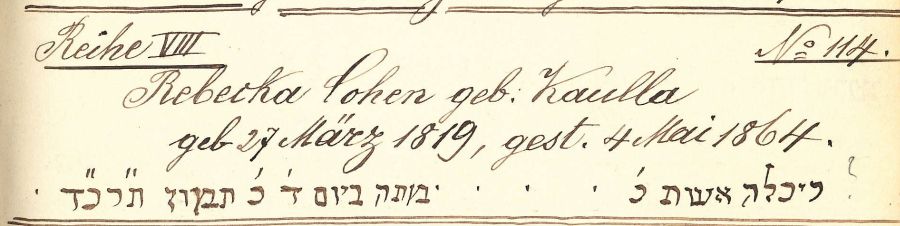 Reihe VIII No 114.
Rebecka Cohen geb. Kaulla
geb 27 März 1819, gest. 4 Mai 1864.
ריכלה אשת כ' . . . . מתה ביום ד' כ' תמוז ת"רכ"ד . ?